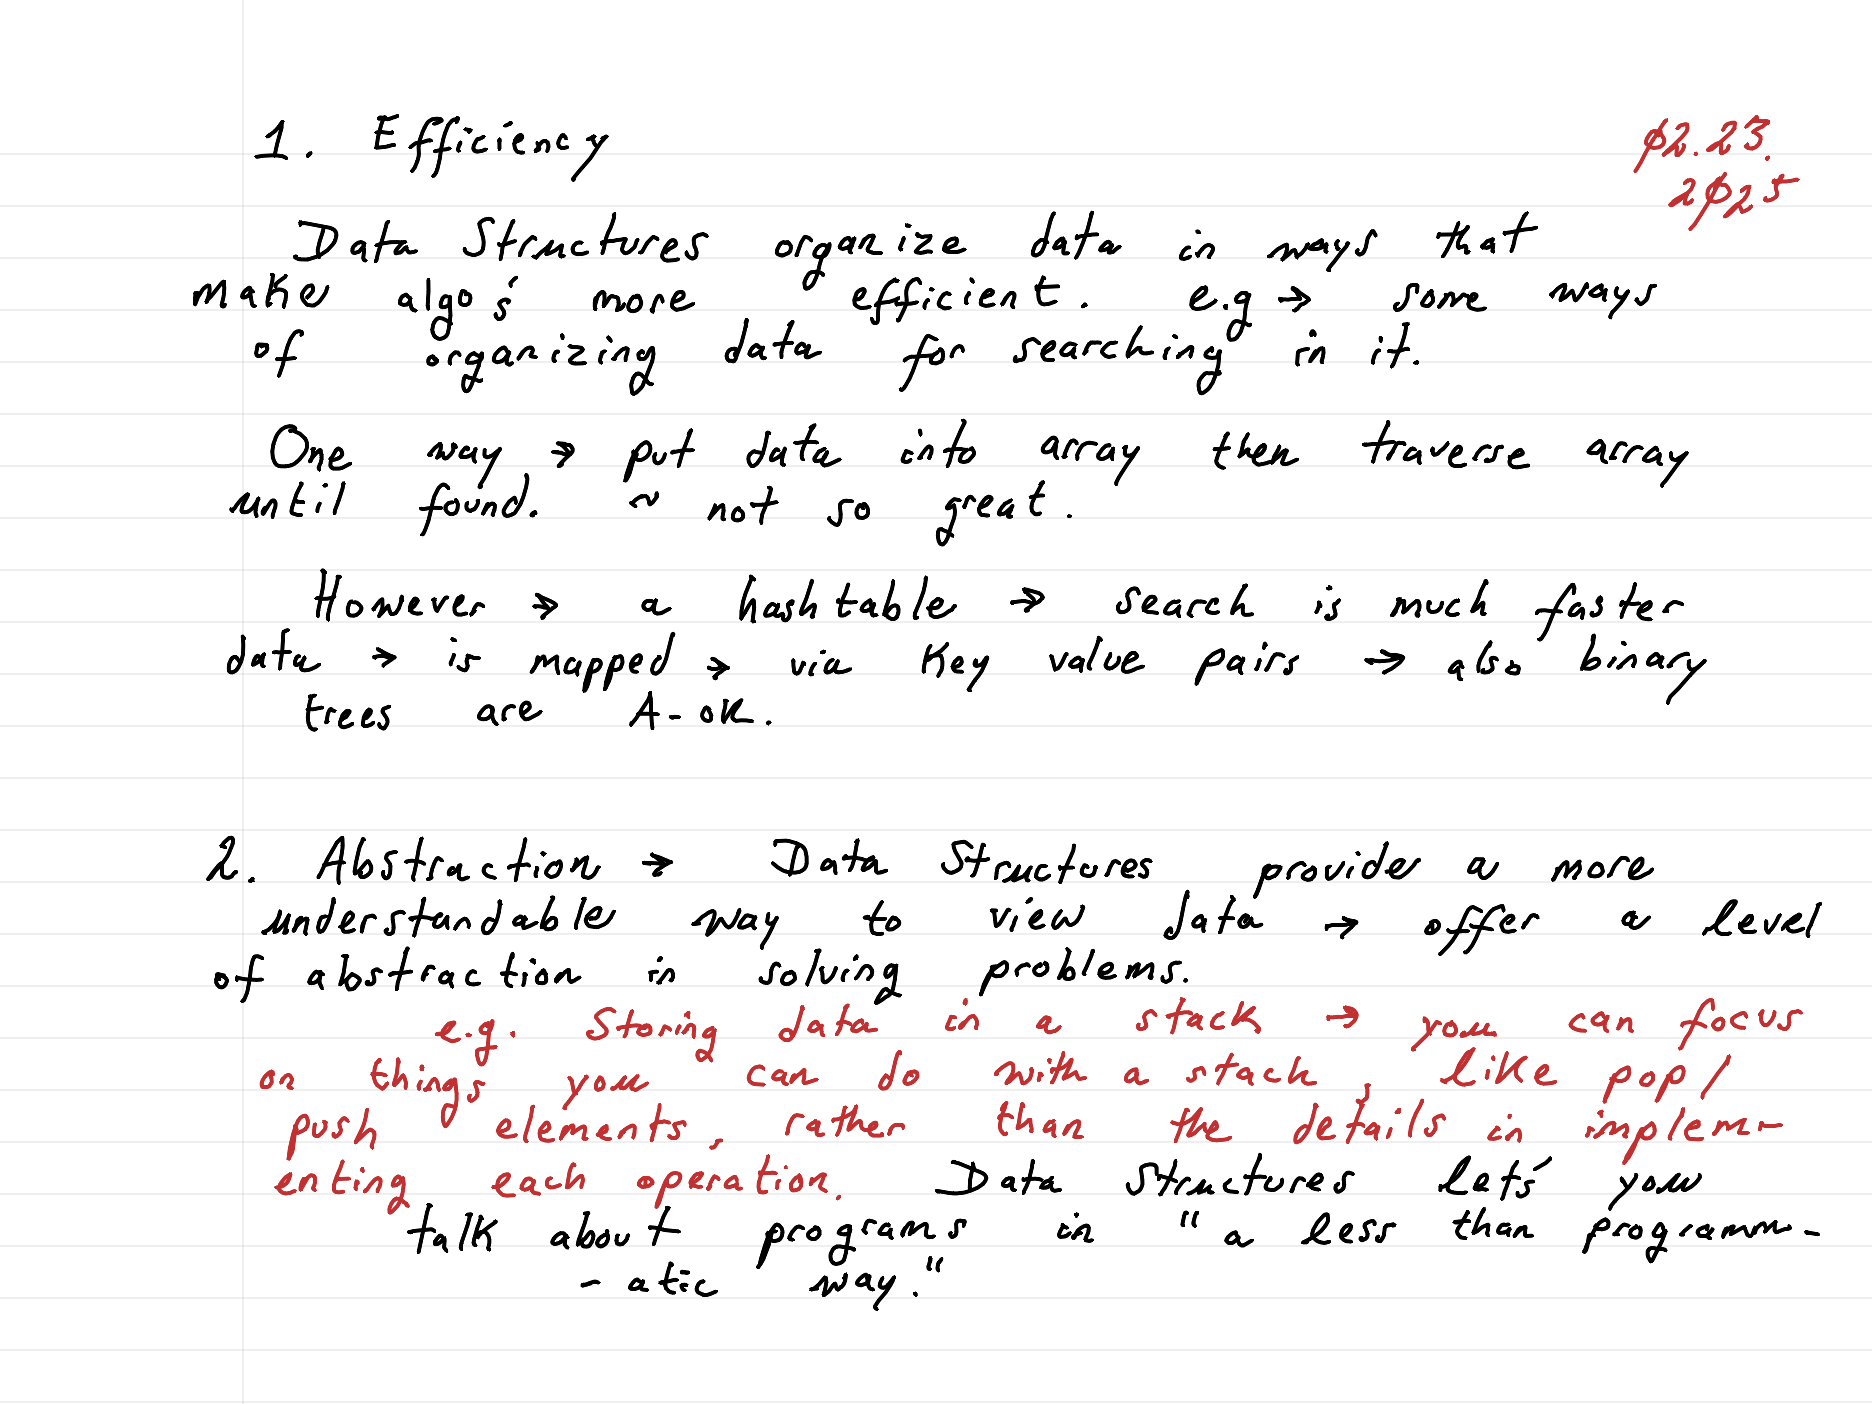 1. Efficiency
02.23.
2025
Data Structures organize data in ways that
make algo's more efficient. e.g → some ways
of organizing data for searching in it.
One way → put data into array then traverse array
until found. ~ not so great.
However → a hashtable → search is much faster
data → is mapped → via key value pairs → also binary
trees are A-OK.
2. Abstraction → Data Structures provide a more
understandable way to view data → offer a level
of abstraction in solving problems.
e.g. Storing data in a stack → you can focus
on things you can do with a stack, like pop/
push elements, rather than the details in implem-
enting each operation. Data Structures let's you
talk about programs in "a less than programm-
-atic way."